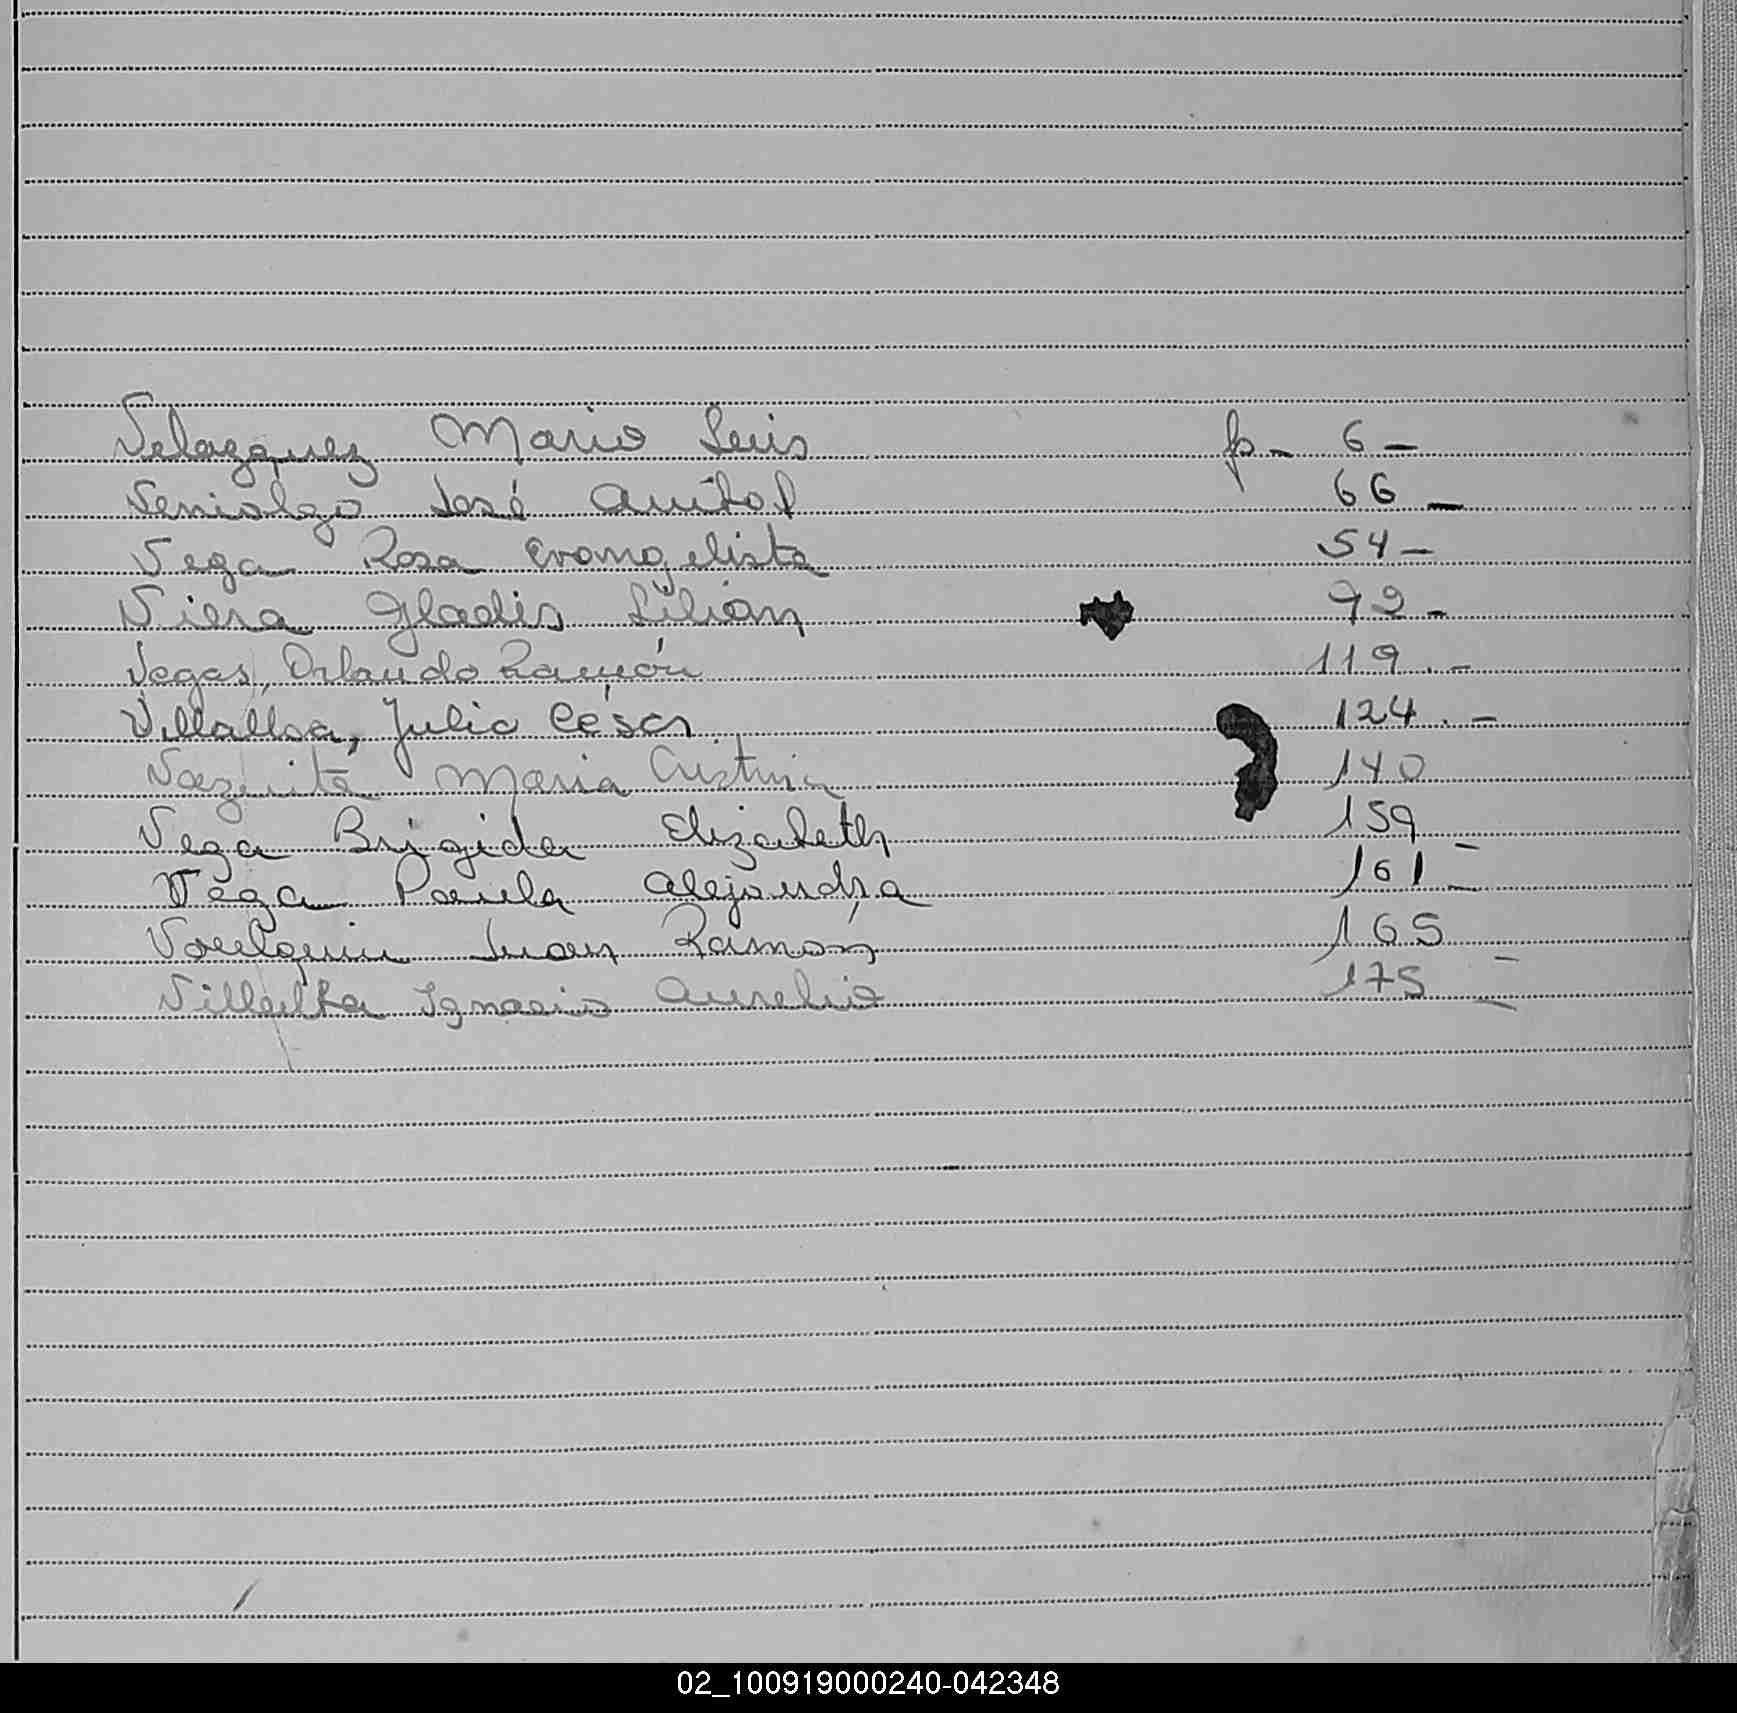 Velazquez Mario Luis fs - 6 -
Venialgo José 66 -
Vega Rosa Evangelista 54 -
Viera Gladis Lilián 92 -
Vegas, Orlando Ramón 119.-
Villalba, Julio César 124.-
Maria Cristina 140
Vega Brigida Elizabeth 159 -
Vega Paula Alejandra 161 -
Juan Ramon 165 -
Villalba Ignacio Aurelio 175 -
02_100919000240-042348